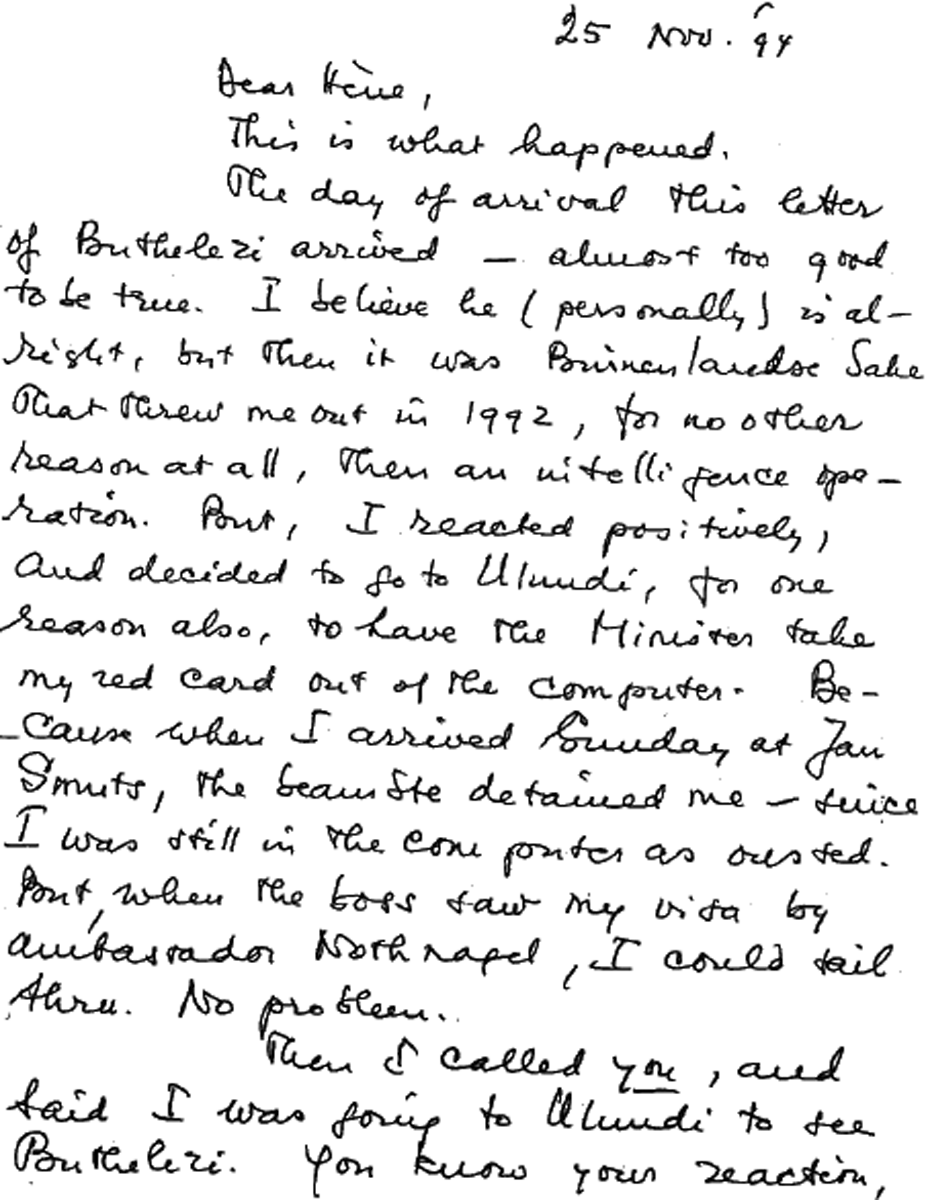 25 Nov. '94
Dear Hène,
This is what happened.
The day of arrival this letter
of Buthelezi arrived — almost too good
to be true. I believe he (personally) is al-
right, but then it was Binnenlandse Sake
that threw me out in 1992, for no other
reason at all, then an intelligence ope-
ration. But, I reacted positively,
and decided to go to Ulundi, for one
reason also, to have the Minister take
my red card out of the computer. Be-
-cause when I arrived Sunday at Jan
Smuts, the beambte detained me — since
I was still in the computer as ousted.
But, when the boss saw my visa by
ambassador Nothnagel, I could sail
thru. No problem..
Then I called you, and
said I was going to Ulundi to see
Buthelezi. You know your reaction,